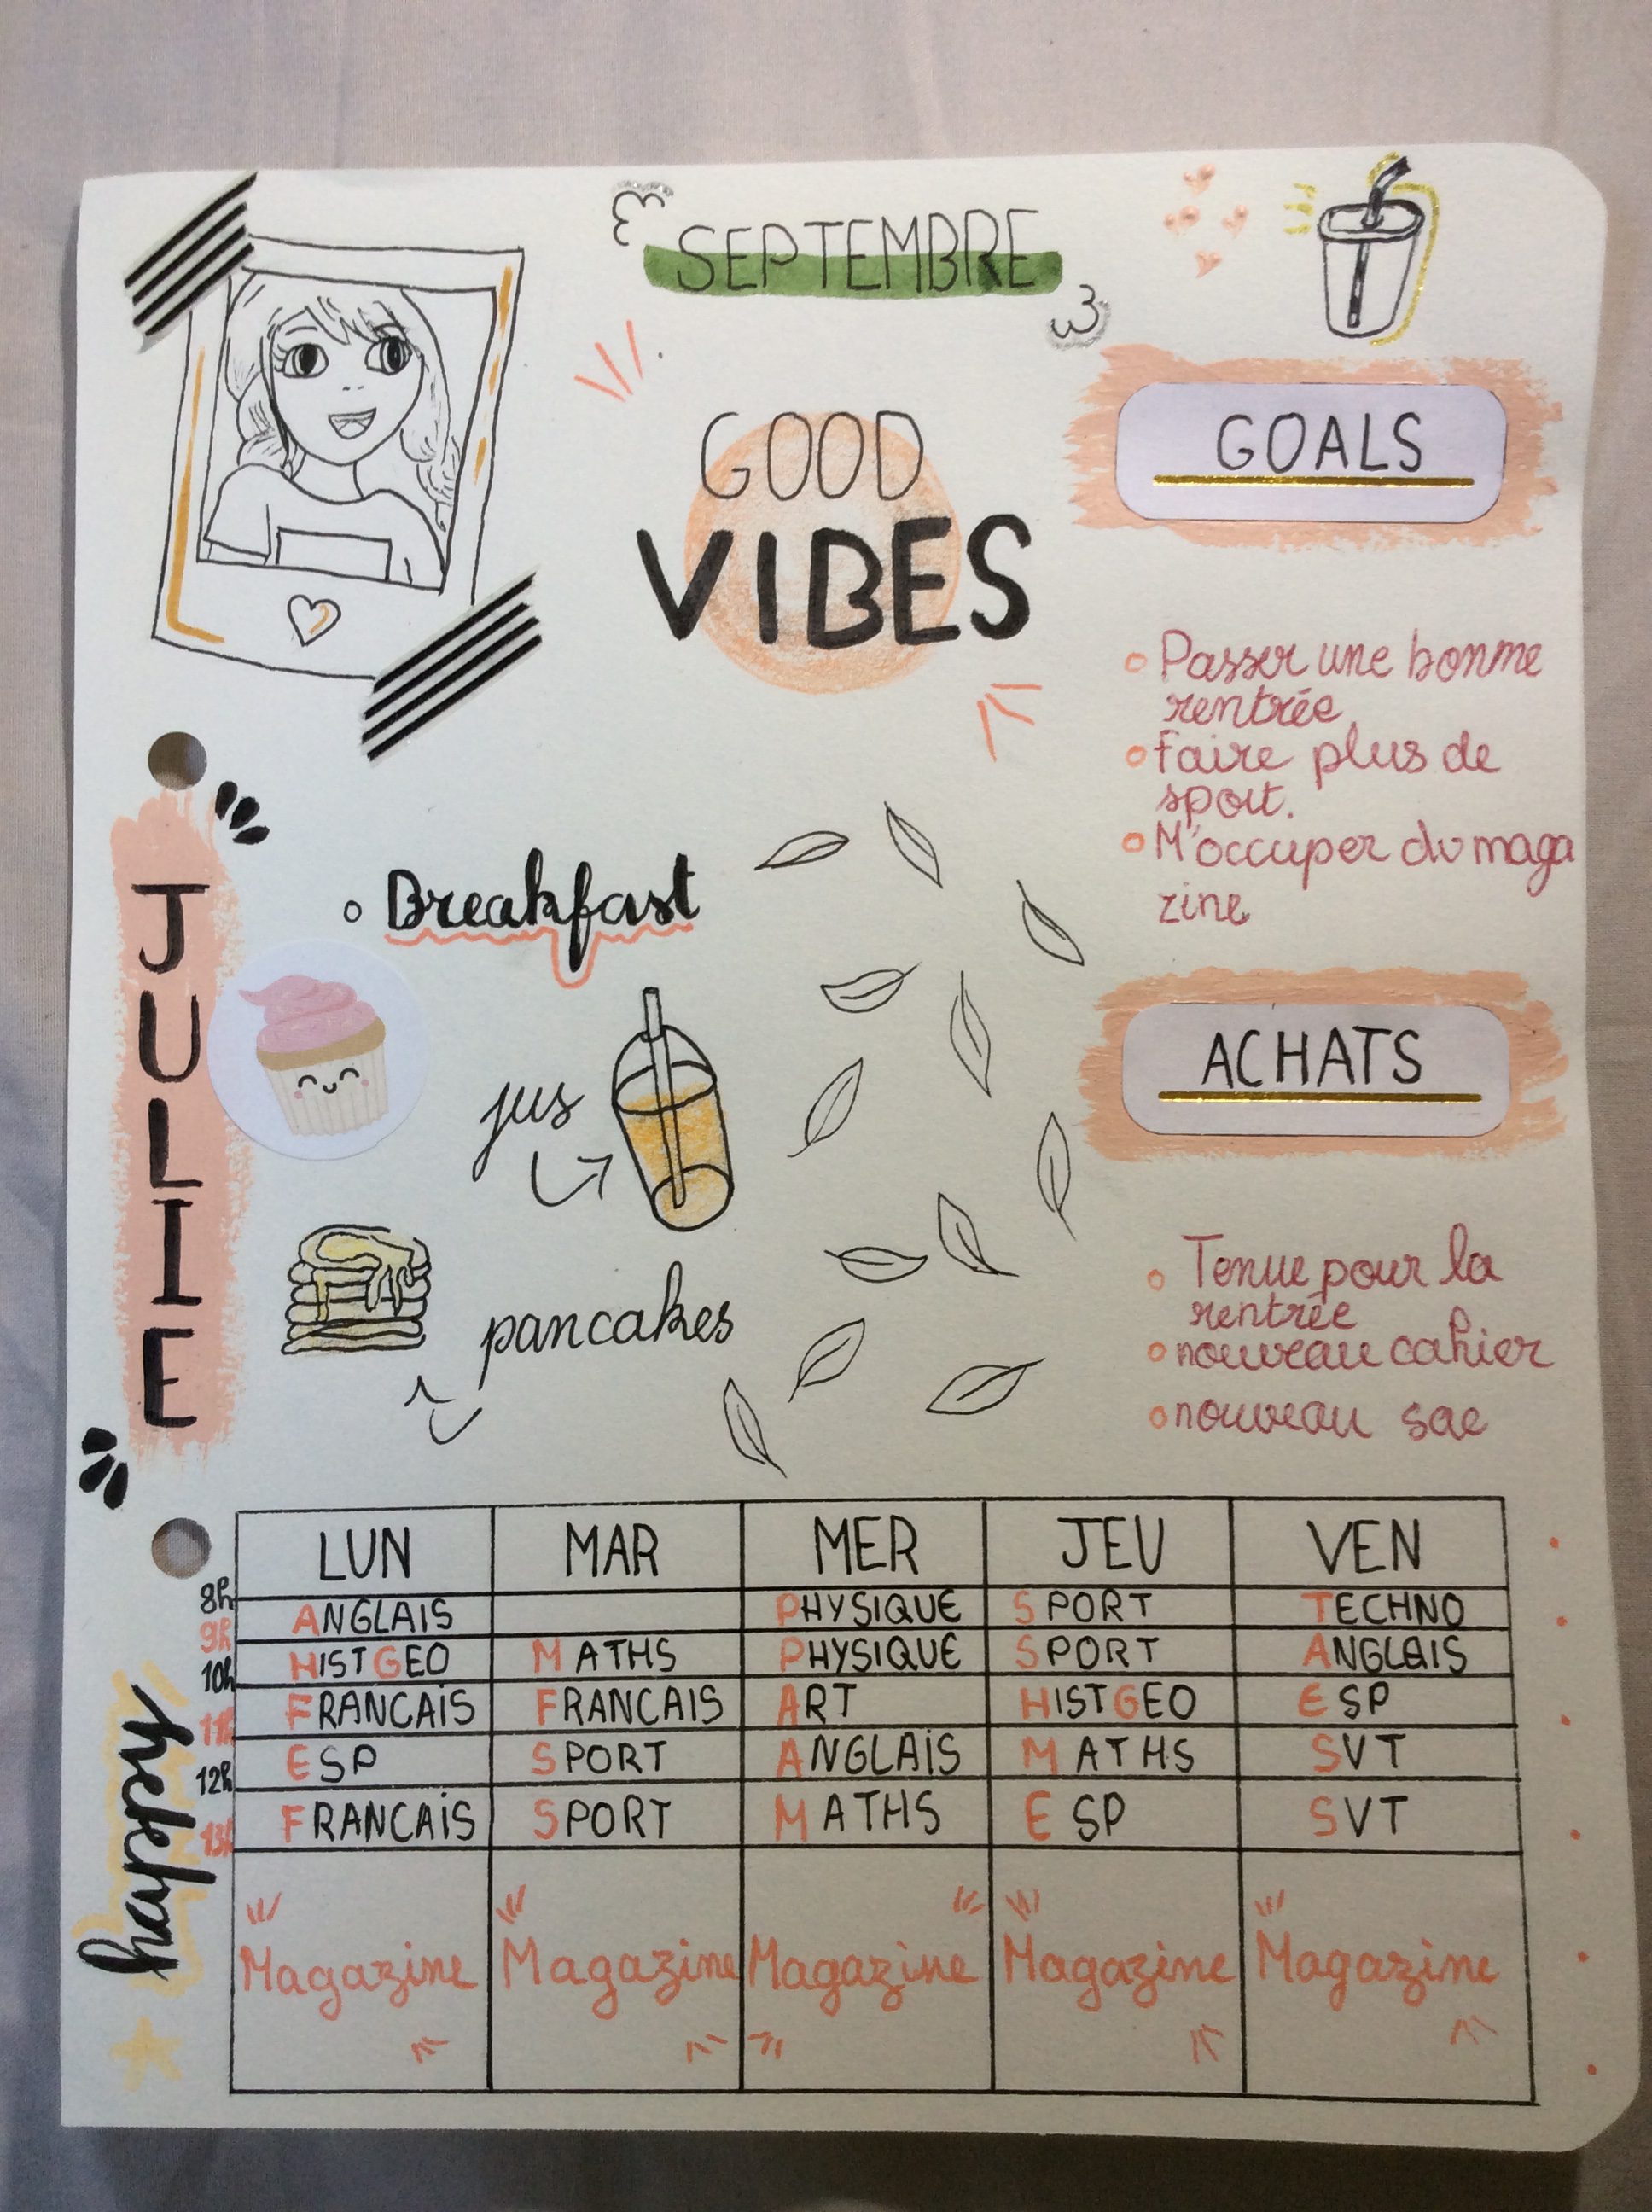 SEPTEMBRE
GOOD
VIBES
GOALS
Passer une bonne
rentrée
faire plus de
sport.
M'occuper du maga
zine
JULIE
Breakfast
jus
pancakes
ACHATS
Tenue pour la
rentrée
nouveau cahier
nouveau sac
LUN MAR MER JEU VEN
8h
ANGLAIS PHYSIQUE SPORT TECHNO
9h
HISTGEO MATHS PHYSIQUE SPORT ANGLAIS
10h
FRANCAIS FRANCAIS ART HISTGEO ESP
11h
ESP SPORT ANGLAIS MATHS SVT
12h
FRANCAIS SPORT MATHS ESP SVT
13h
Magazine Magazine Magazine Magazine Magazine